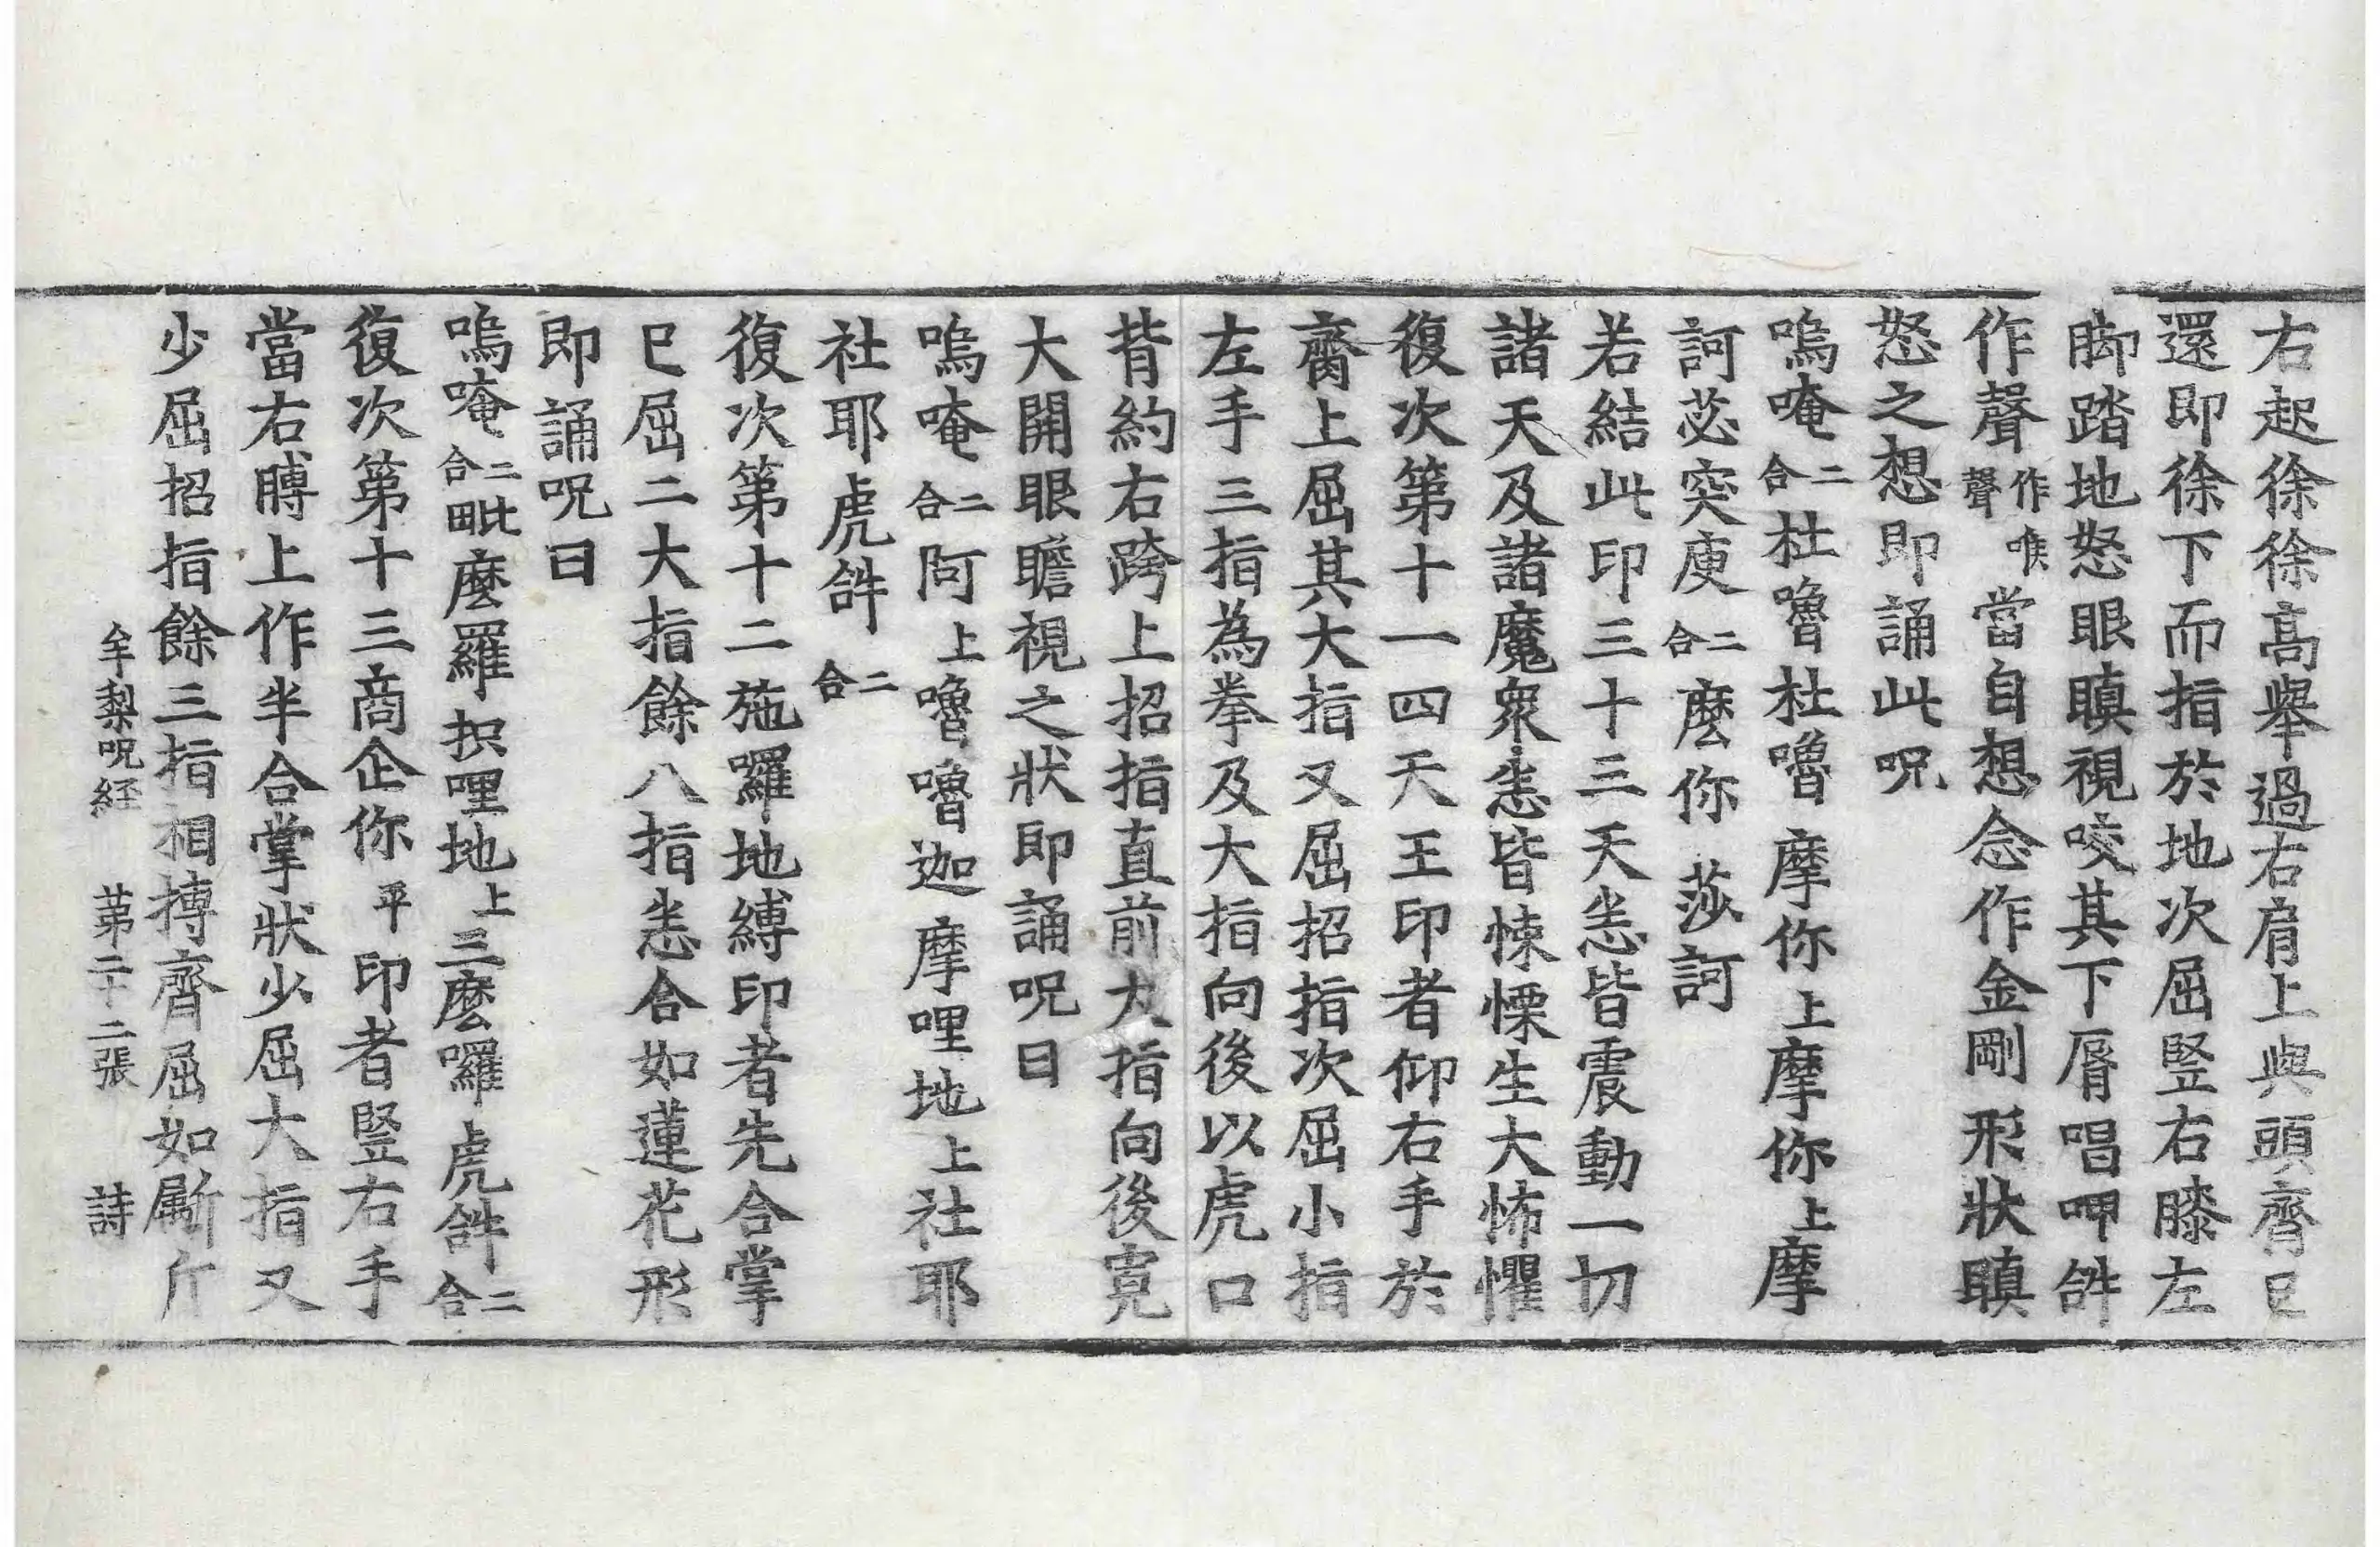 右起徐徐高舉過右肩上與頭齊已
還即徐下而指於地次屈竪右膝左
脚踏地怒眼瞋視咬其下脣唱呷𤙖
作聲作喉聲當自想念作金剛形狀瞋
怒之想即誦此呪
嗚唵二合杜嚕杜嚕摩你上摩你上摩
訶苾突庾二合麽你莎訶
若結此印三十三天悉皆震動一切
諸天及諸魔衆悉皆悚慄生大怖懼
復次第十一四天王印者仰右手於
齎上屈其大指又屈招指次屈小指
左手三指為拳及大指向後以虎口
背約右跨上招指直前大指向後寛
大開眼瞻視之狀即誦呪曰
嗚唵二合阿上嚕嚕迦摩哩地上社耶
社耶虎𤙖二合
復次第十二施囉地縛印者先合掌
已屈二大指餘八指悉合如蓮花形
即誦呪曰
嗚唵二合毗麽羅抧哩地上三麽囉虎𤙖二合
復次第十三商企你平印者竪右手
當右膊上作半合掌狀少屈大指又
少屈招指餘三指相摶齊屈如斸斤
牟梨呪経 第二十二張 詩